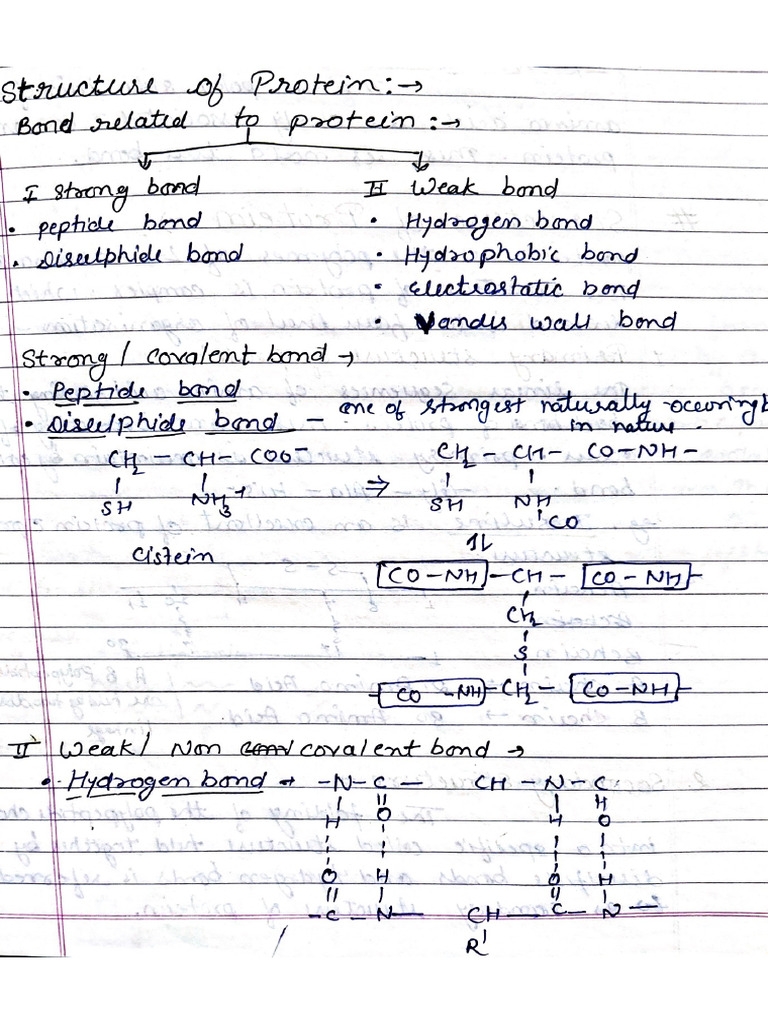 Structure of Protein :→
Bond related to protein :→
I Strong bond
• peptide bond
• Disulphide bond
II Weak bond
• Hydrogen bond
• Hydrophobic bond
• Electrostatic bond
• Vander Wall bond
Strong / Covalent bond →
• Peptide bond
• Disulphide bond — one of strongest naturally occuring b
in nature.
CH2 — CH — COO-
SH NH3+
Cistein
⇒
CH2 — CH — CO — NH —
SH NH
CO
⥮
CO — NH — CH — CO — NH —
CH2
S
CO — NH — CH2 — CO — NH —
II Weak / Non covalent bond →
• Hydrogen bond →
— N — C —
H O
O H
— C — N —
CH — N — C
H O
O H
CH — C — N —
R